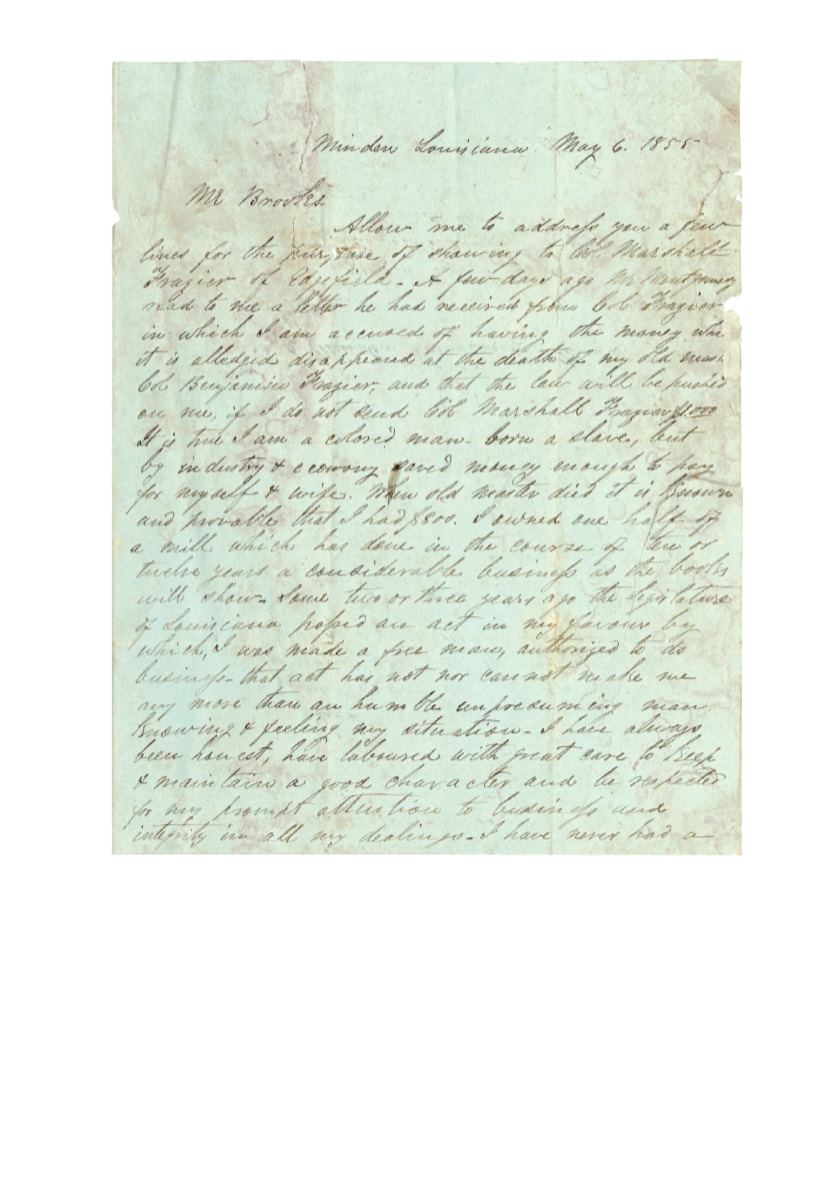 Minden Louisiana May 6. 1855
Mr Brooks
Allow me to address you a few
lines for the purpose of showing to Col. Marshall
Frazier of Edgefield - A few days ago Mr Montgomery
read to me a letter he had received from Col Frazier
in which I am accused of having the money whi
it is alledged disappeared at the death of my old mast
Col Benjamin Frazier, and that the law will be pushed
on me, if I do not send Col Marshall Frazier
It is true I am a colored man - born a slave, but
by industry & economy saved money enough to pay
for myself & wife. When old master died it is known
and provable that I had $800. I owned one half of
a mill which has done in the course of ten or
twelve years a considerable business as the books
will show - Some two or three years ago the Legislature
of Louisiana passed an act in my favour by
which, I was made a free man, authorized to do
business - that act has not nor cannot make me
any more than an humble unpresuming man
Knowing & feeling my situation - I have always
been honest, have laboured with great care to keep
& maintain a good character and be respected
for my prompt attention to business and
integrity in all my dealings - I have never had a